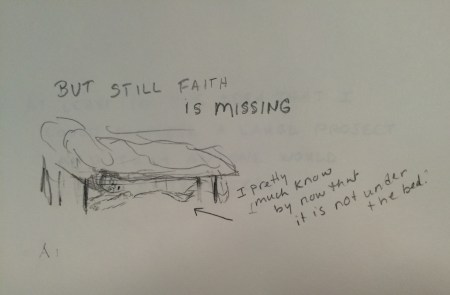 BUT STILL FAITH
IS MISSING
I pretty
much know
by now that
it is not under
the bed.